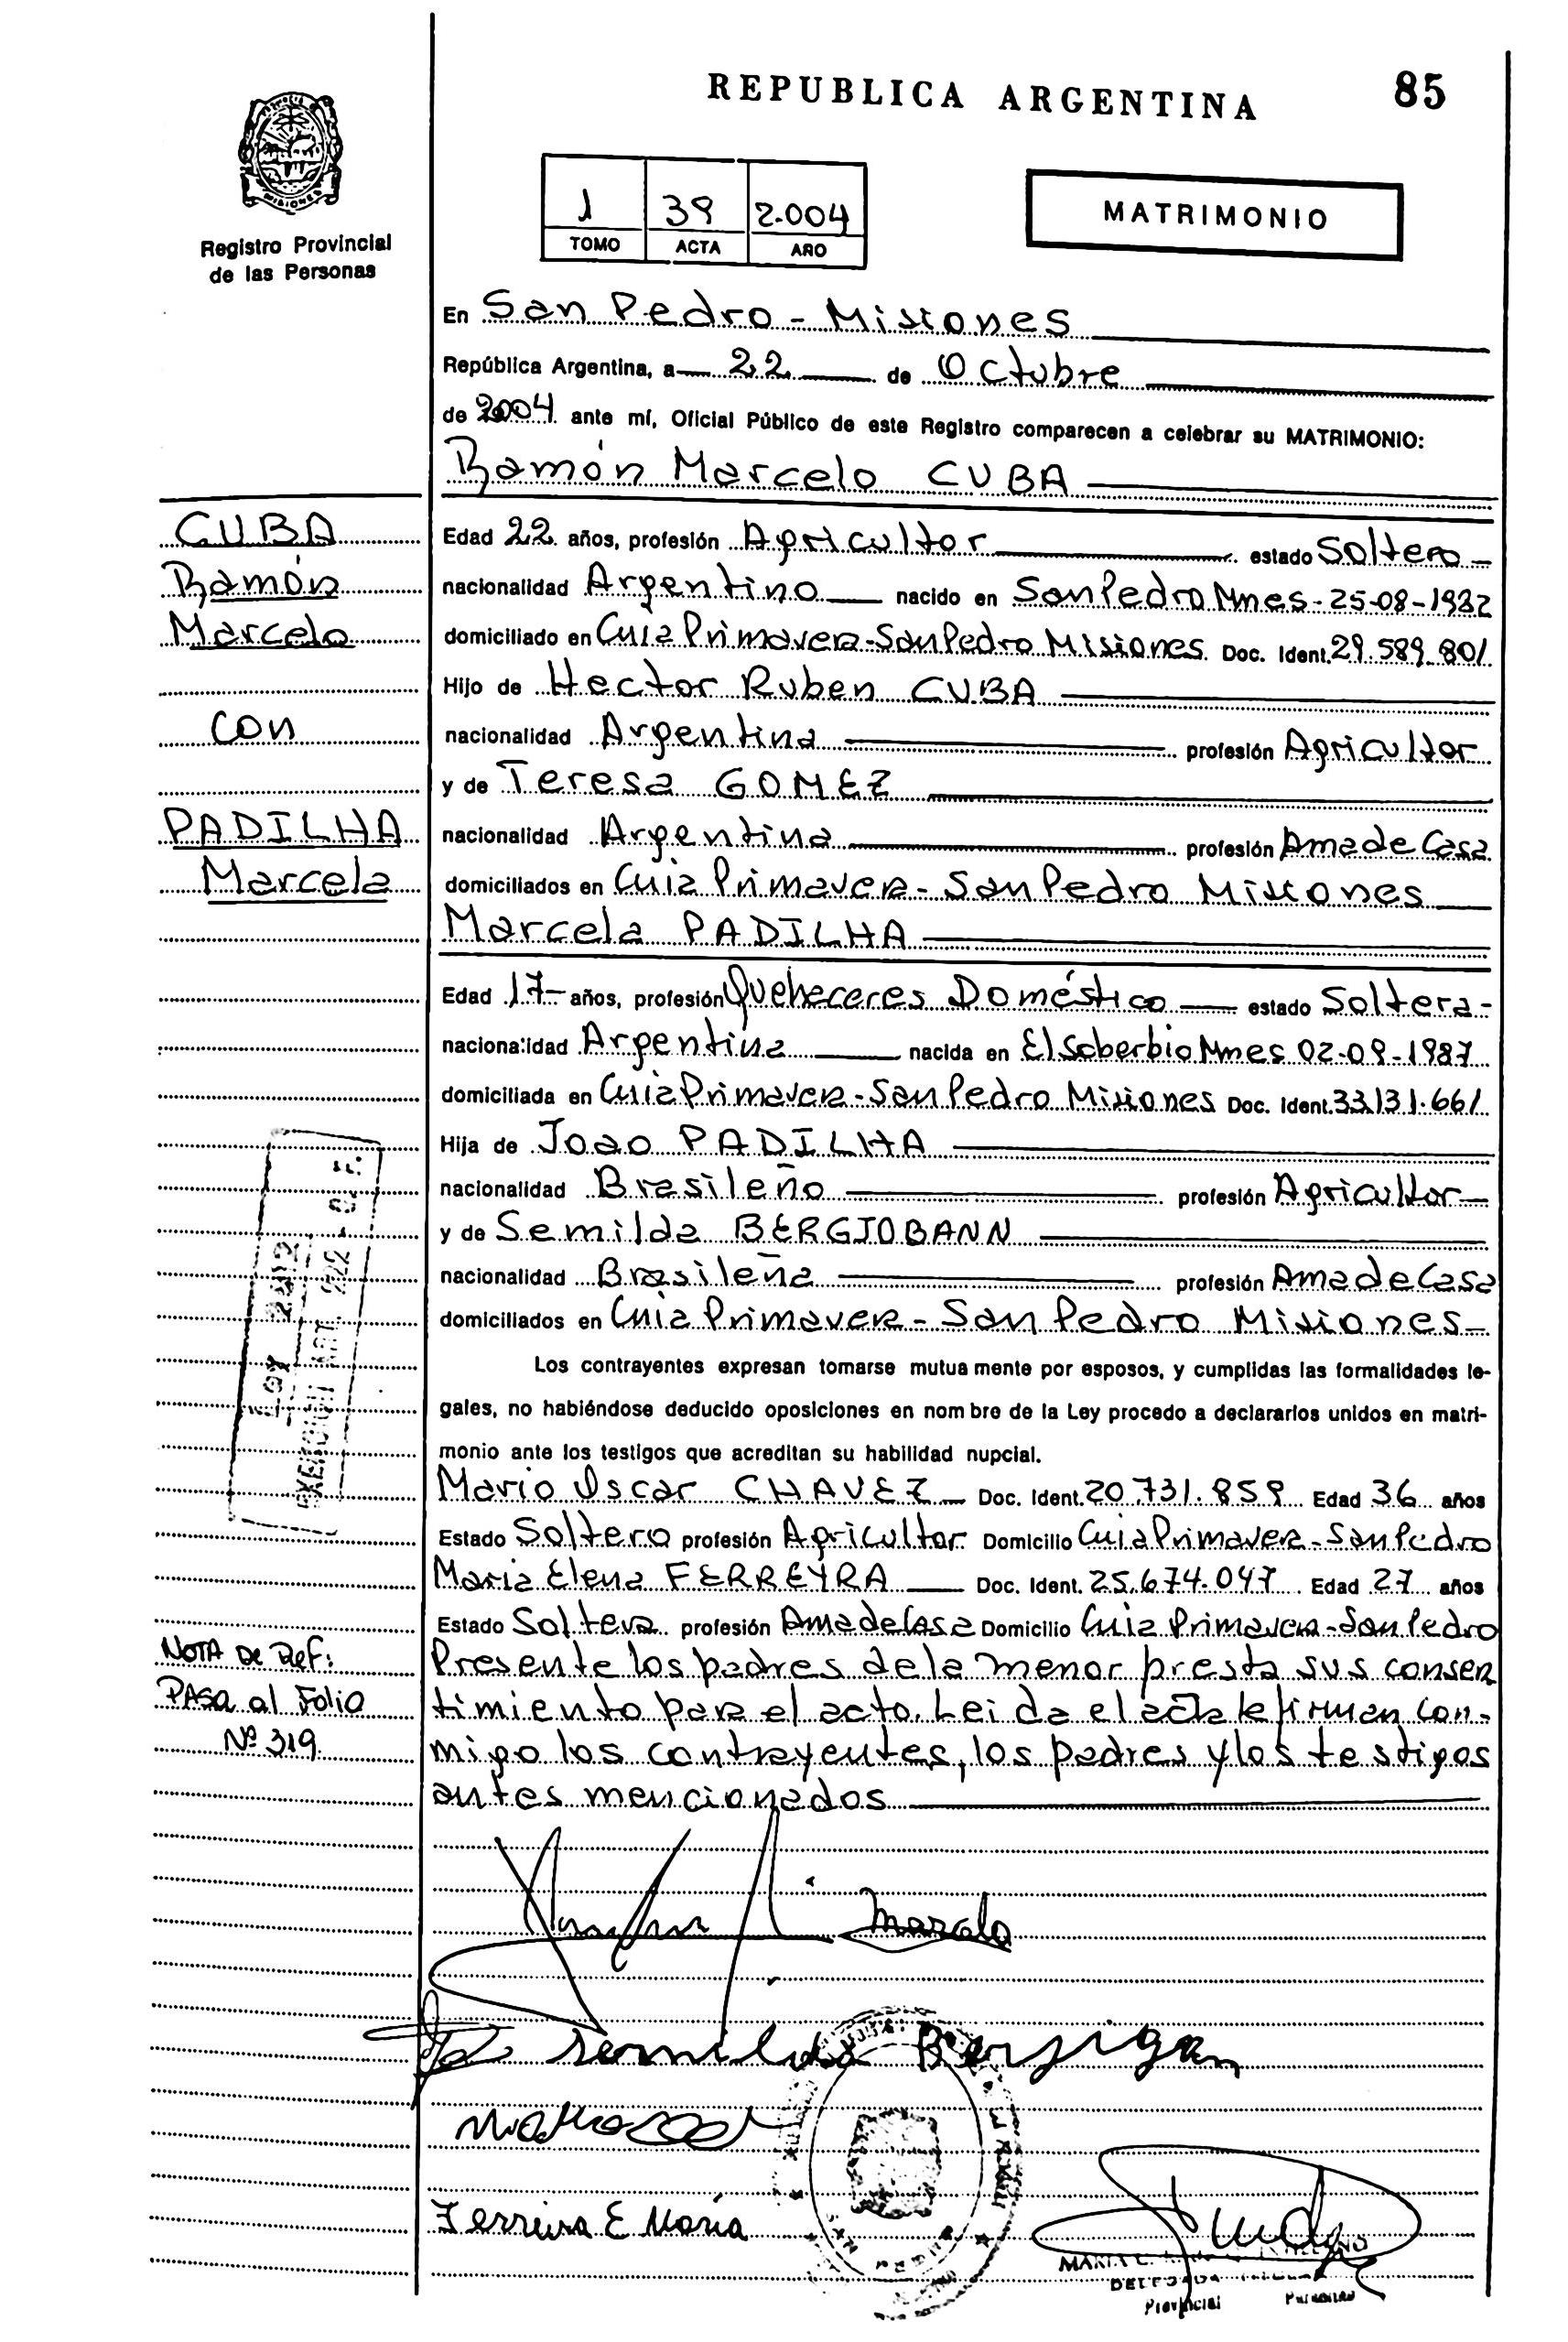 REPUBLICA ARGENTINA
85
MISIONES
Registro Provincial
de las Personas
1 39 2.004
TOMO ACTA AÑO
MATRIMONIO
En San Pedro - Misiones
República Argentina, a 22 de Octubre
de 2004 ante mí, Oficial Público de este Registro comparecen a celebrar su MATRIMONIO:
Ramón Marcelo CUBA
CUBA
Ramón
Marcelo
con
PADILHA
Marcela
Edad 22 años, profesión Agricultor estado Soltero
nacionalidad Argentino nacido en San Pedro Mnes - 25-08-1982
domiciliado en Cuia Primavera - San Pedro Misiones Doc. Ident. 29.589.801
Hijo de Hector Ruben CUBA
nacionalidad Argentina profesión Agricultor
y de Teresa GOMEZ
nacionalidad Argentina profesión Ama de Casa
domiciliados en Cuia Primavera - San Pedro Misiones
Marcela PADILHA
Edad 17 años, profesión Queheceres Doméstico estado Soltera
nacionalidad Argentina nacida en El Soberbio Mnes 02-09-1987
domiciliada en Cuia Primavera - San Pedro Misiones Doc. Ident. 33.131.661
Hija de Joao PADILHA
nacionalidad Brasileño profesión Agricultor
y de Semilda BERGIOBANN
nacionalidad Brasileña profesión Ama de Casa
domiciliados en Cuia Primavera - San Pedro Misiones
Los contrayentes expresan tomarse mutua mente por esposos, y cumplidas las formalidades le-
gales, no habiéndose deducido oposiciones en nom bre de la Ley procedo a declararlos unidos en matri-
monio ante los testigos que acreditan su habilidad nupcial.
Mario Oscar CHAVEZ Doc. Ident. 20.731.859 Edad 36 años
Estado Soltero profesión Agricultor Domicilio Cuia Primavera - San Pedro
Maria Elena FERREYRA Doc. Ident. 25.674.047 Edad 27 años
Estado Soltera profesión Ama de Casa Domicilio Cuia Primavera - San Pedro
Presente los padres de la menor presta sus consen
timiento para el acto. Leida el acta la firman con-
migo los contrayentes, los padres y los testigos
antes mencionados
NOTA de Ref:
PASA al Folio
Nº 319
ART. 222
Marcelo
Semilda
Ferreira E Maria
MARIA
DELEGADA
Provincial